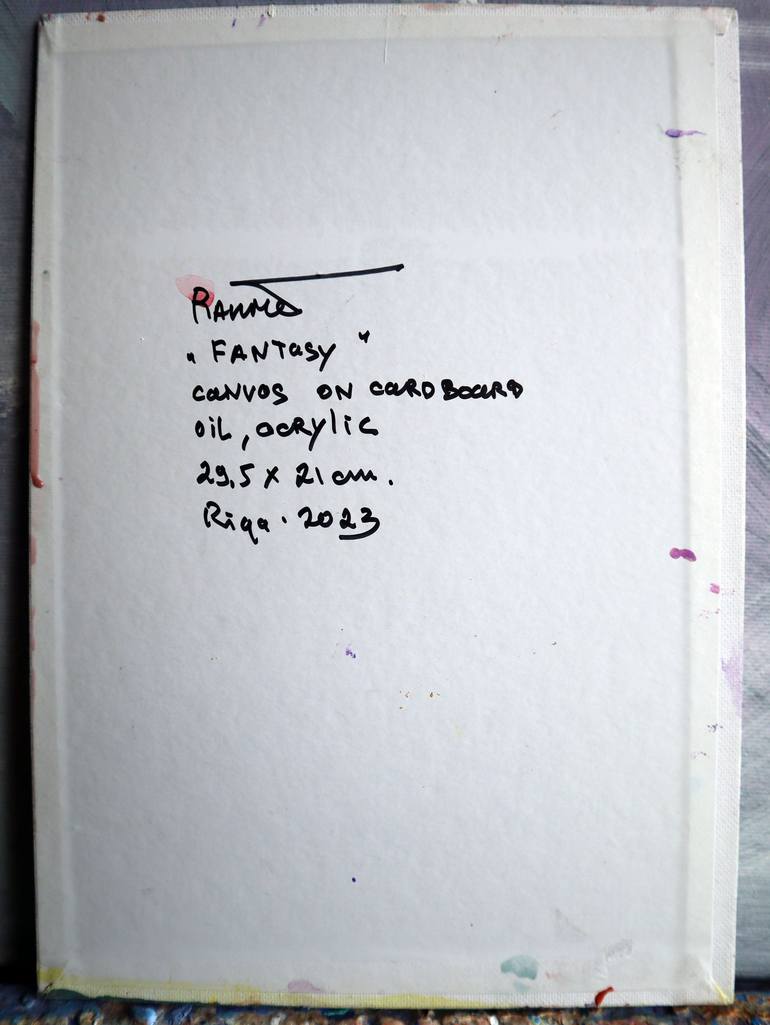 „ FANTasy "
canvas on cardboard
oil, acrylic
29,5 x 21 cm.
Riga. 2023